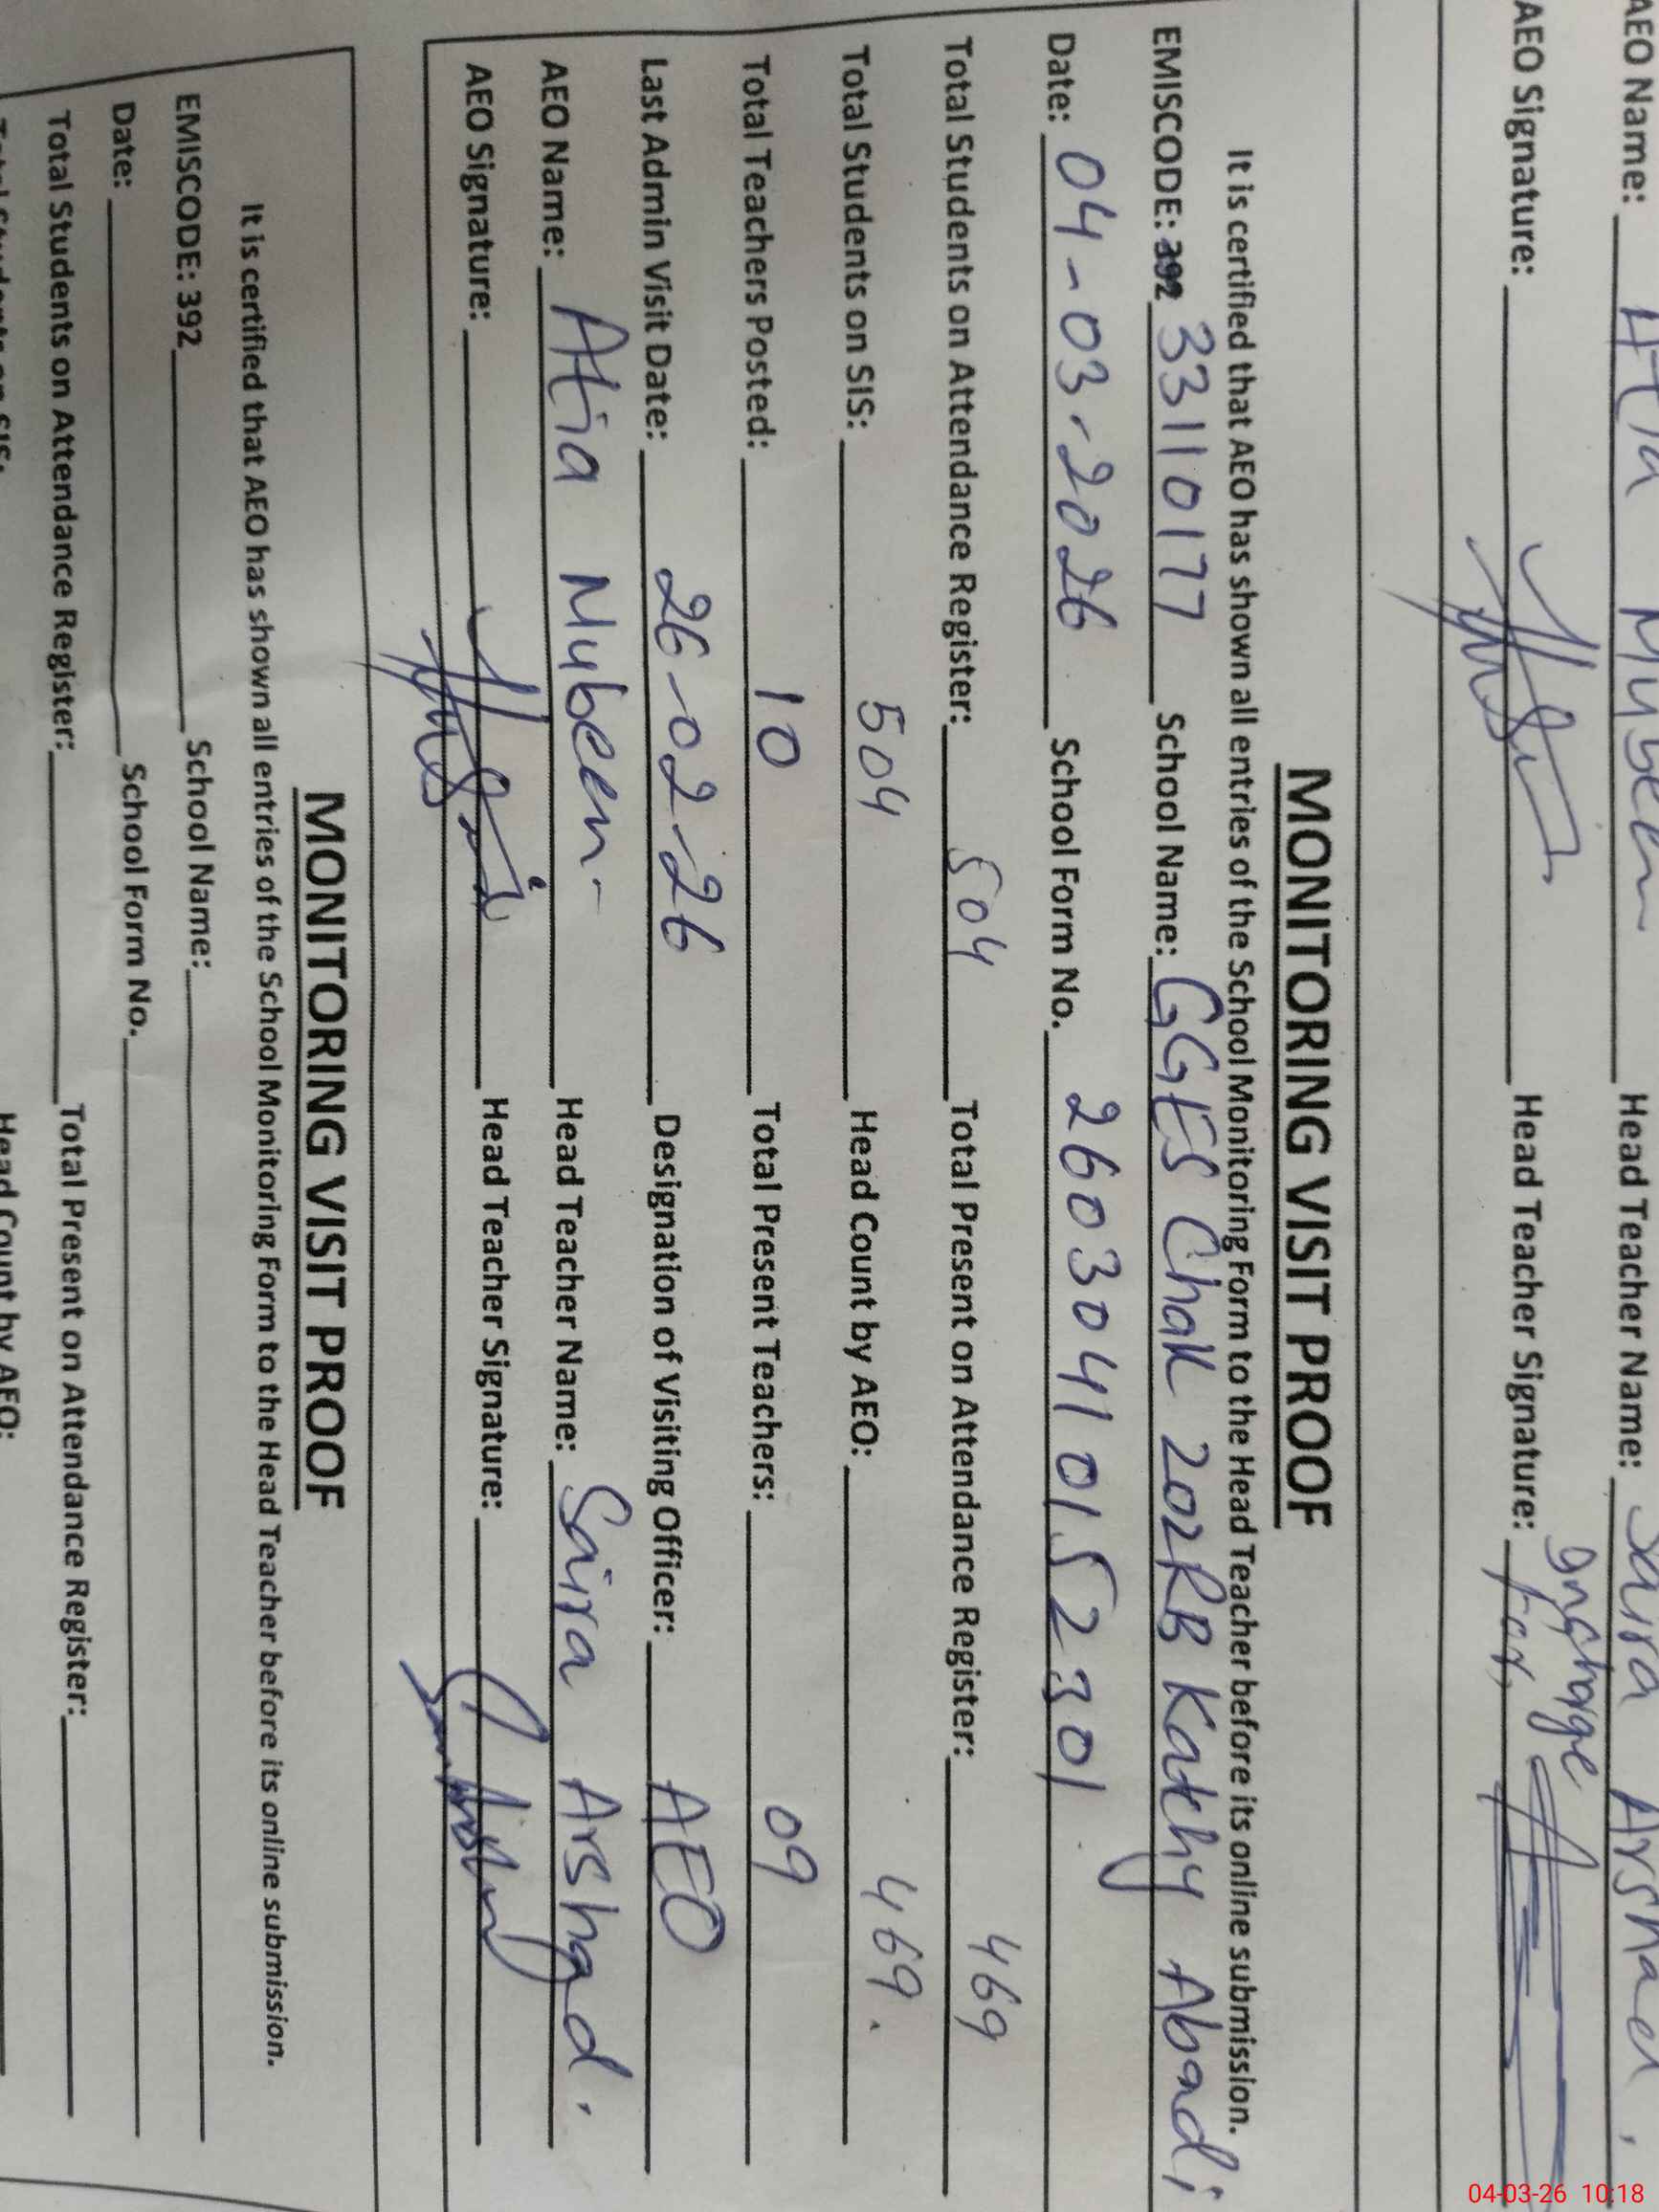 AEO Name: Atia Mubeen Head Teacher Name: Saira Arshad.
Incharge
AEO Signature: Head Teacher Signature: For,
MONITORING VISIT PROOF
It is certified that AEO has shown all entries of the School Monitoring Form to the Head Teacher before its online submission.
EMISCODE: 392 33110177 School Name: GGES Chak 202RB Kathy Abadi
Date: 04-03-2026 School Form No. 26030410152301
Total Students on Attendance Register: 504 Total Present on Attendance Register: 469
Total Students on SIS: 504 Head Count by AEO: 469.
Total Teachers Posted: 10 Total Present Teachers: 09
Last Admin Visit Date: 26-02-26 Designation of Visiting Officer: AEO
AEO Name: Atia Mubeen. Head Teacher Name: Saira Arshad.
AEO Signature: Head Teacher Signature:
MONITORING VISIT PROOF
It is certified that AEO has shown all entries of the School Monitoring Form to the Head Teacher before its online submission.
EMISCODE: 392 School Name:
Date: School Form No.
Total Students on Attendance Register: Total Present on Attendance Register:
Total Students on SIS: Head Count by AEO:
04-03-26 10:18